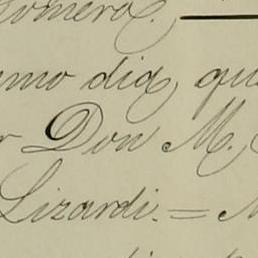 Romero.
smo dia, que
r Don M.
Lizardi. =